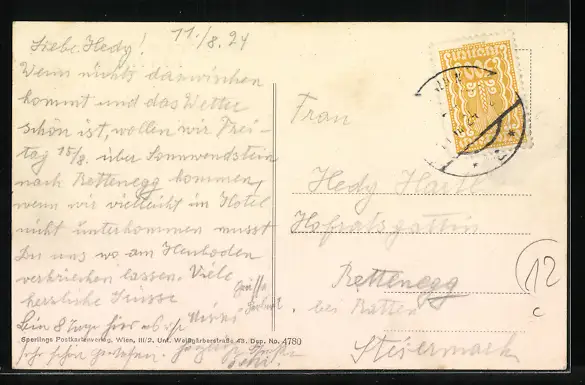 11./8. 24
Liebe Hedy!
Wenn nichts dazwischen
kommt und das Wetter
schön ist, wollen wir Frei-
tag 15/8. über Sonnwendstein
nach Rettenegg kommen,
wenn wir vielleicht im Hotel
nicht unterkommen musst
Du uns wo am Heuboden
verkriechen lassen. Viele
herzliche Grüsse
Bin 8 Tage hier
Sperlings Postkartenverlag, Wien, III/2, Unt. Weißgärberstraße 43. Dep. No. 4780
sehr schön gewesen.
Frau
Hedy Hartl
Hofratsgattin
Rettenegg
bei Ratten
Steiermark
12
c